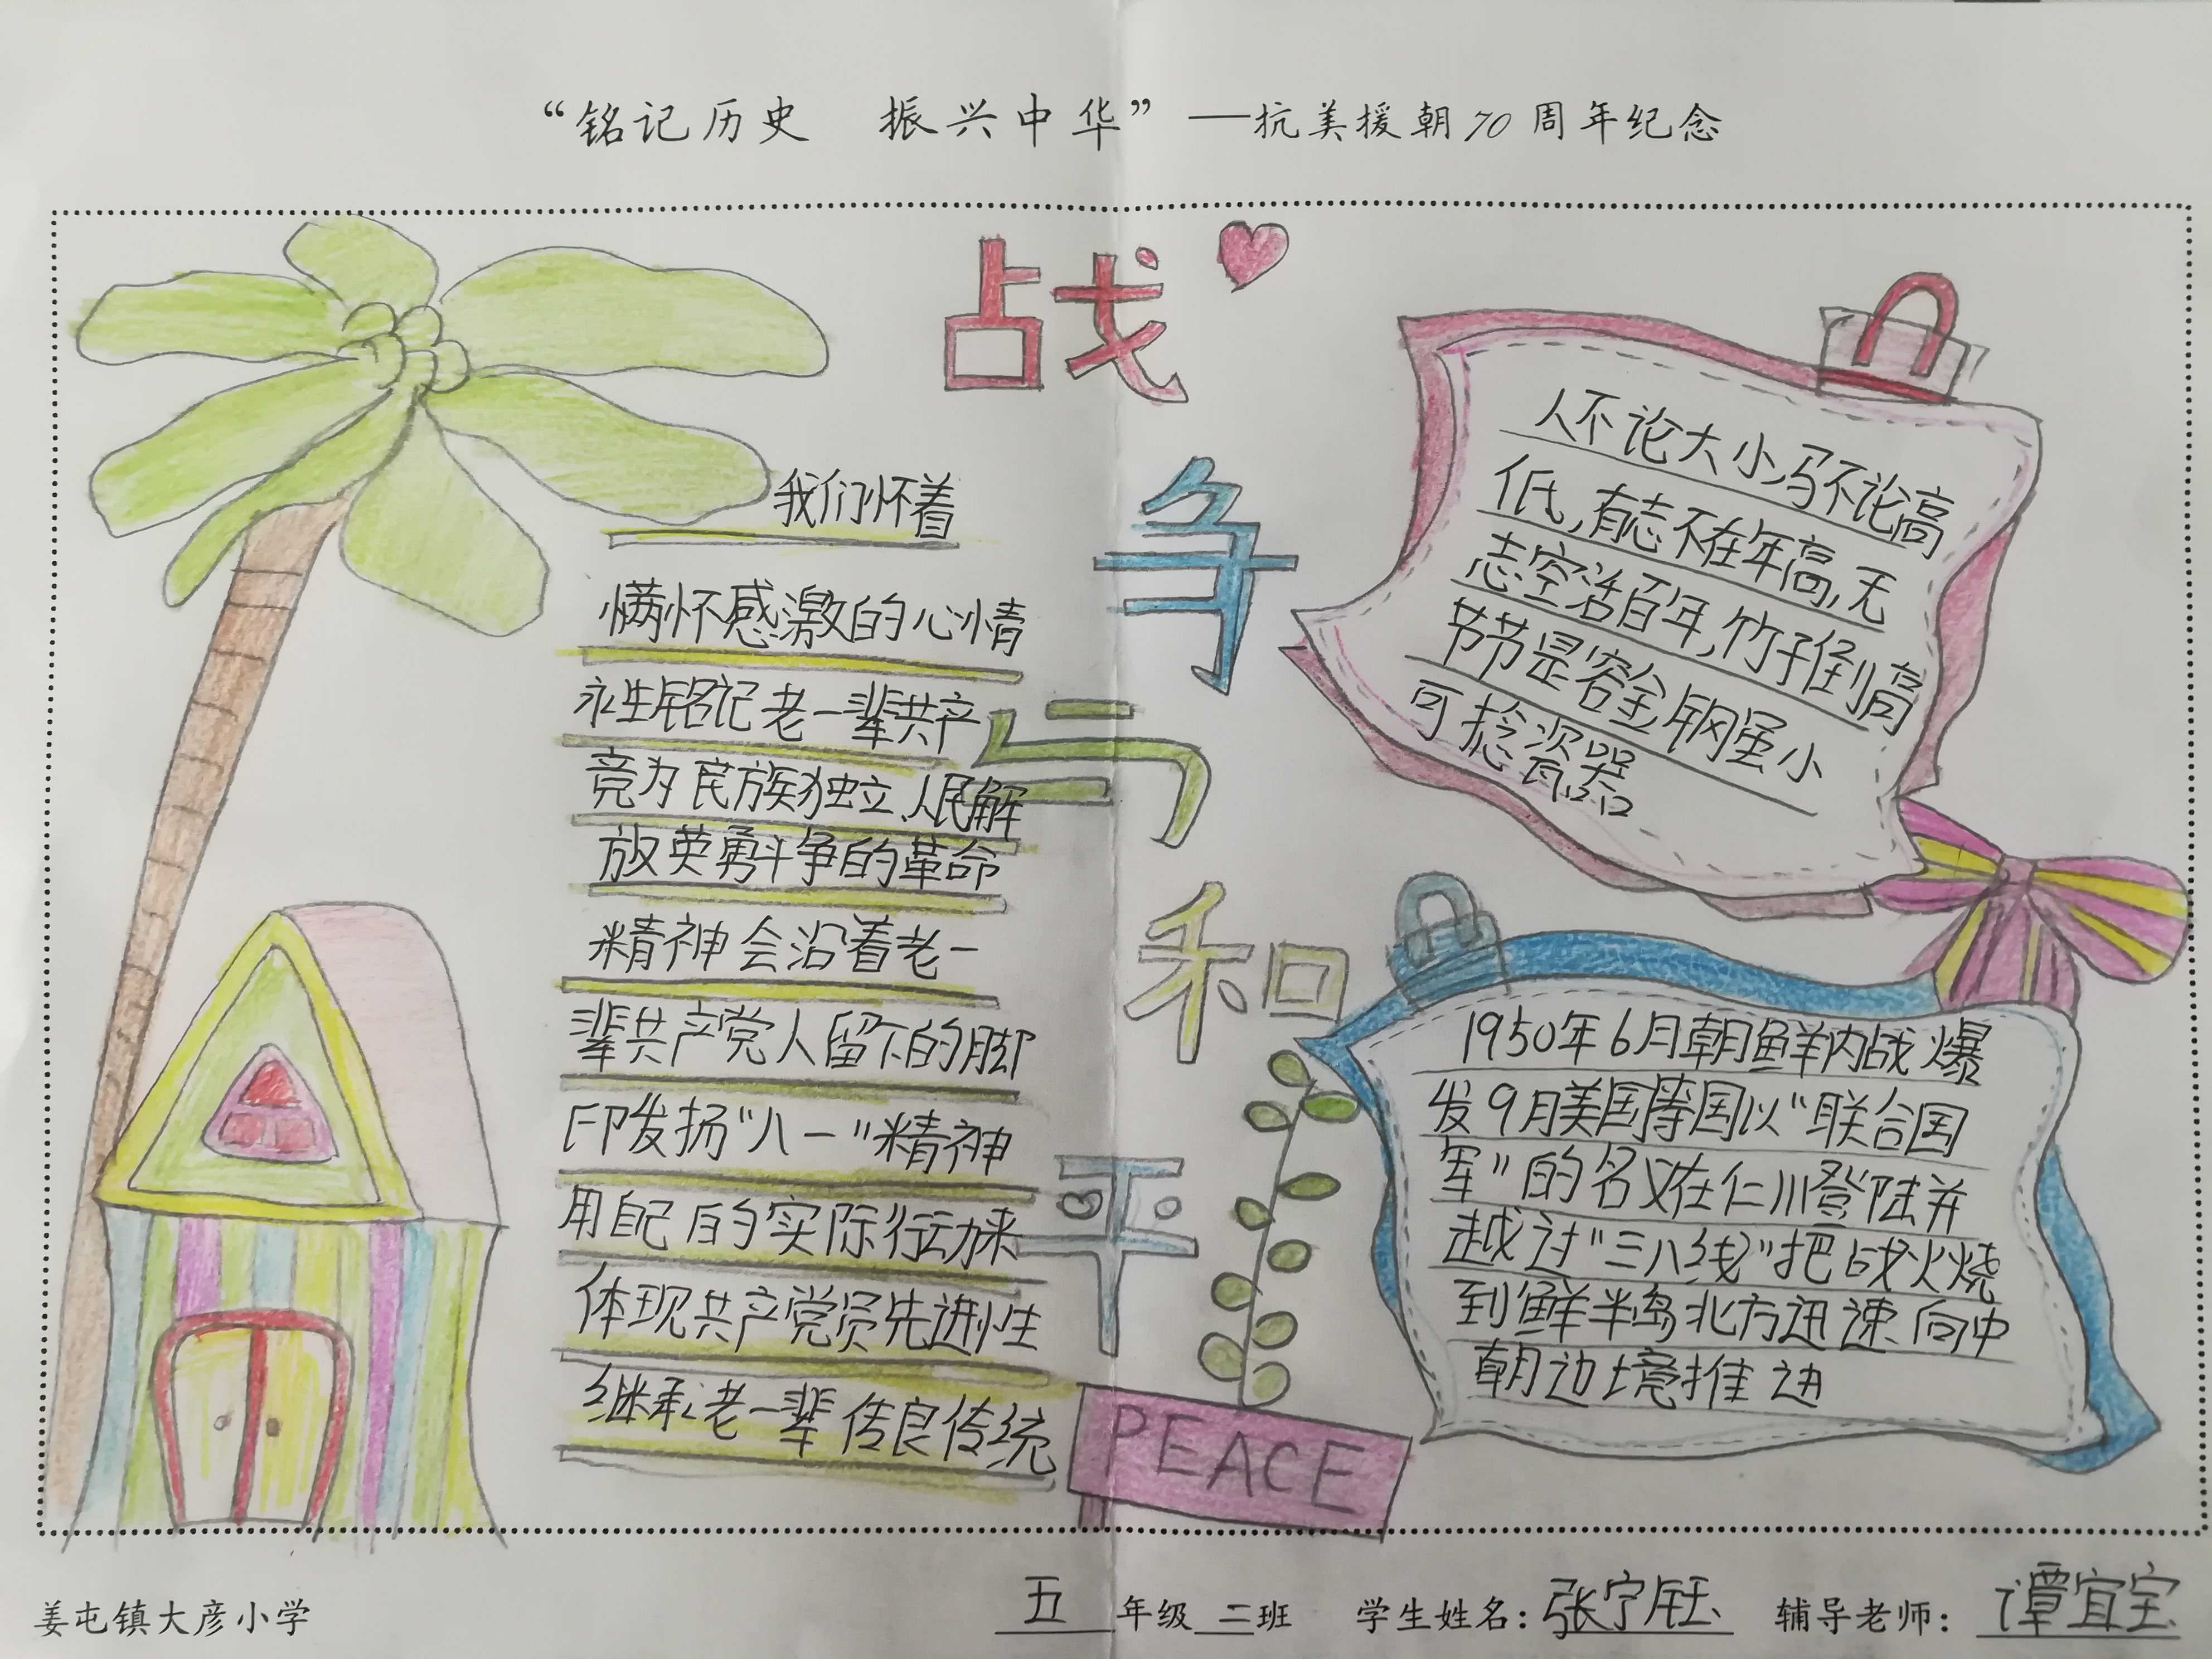 “铭记历史 振兴中华”——抗美援朝70周年纪念
战
争
与
和
平
我们怀着
满怀感激的心情
永生铭记老一辈共产
竞为民族独立、人民解
放英勇斗争的革命
精神会沿着老一
辈共产党人留下的脚
印发扬“八一”精神
用自己的实际行动来
体现共产党员先进性
继承老一辈传良传统
人不论大小,马不论高
低,有志不在年高,无
志空活百年,竹子倒高
节节是容金,钢虽小
可捻瓷器
1950年6月朝鲜内战爆
发9月美国等国以“联合国
军”的名义在仁川登陆并
越过“三八线”把战火烧
到鲜半岛北方迅速向中
朝边境推进
PEACE
姜屯镇大彦小学 五年级二班 学生姓名:张宁钰 辅导老师:谭宜宝